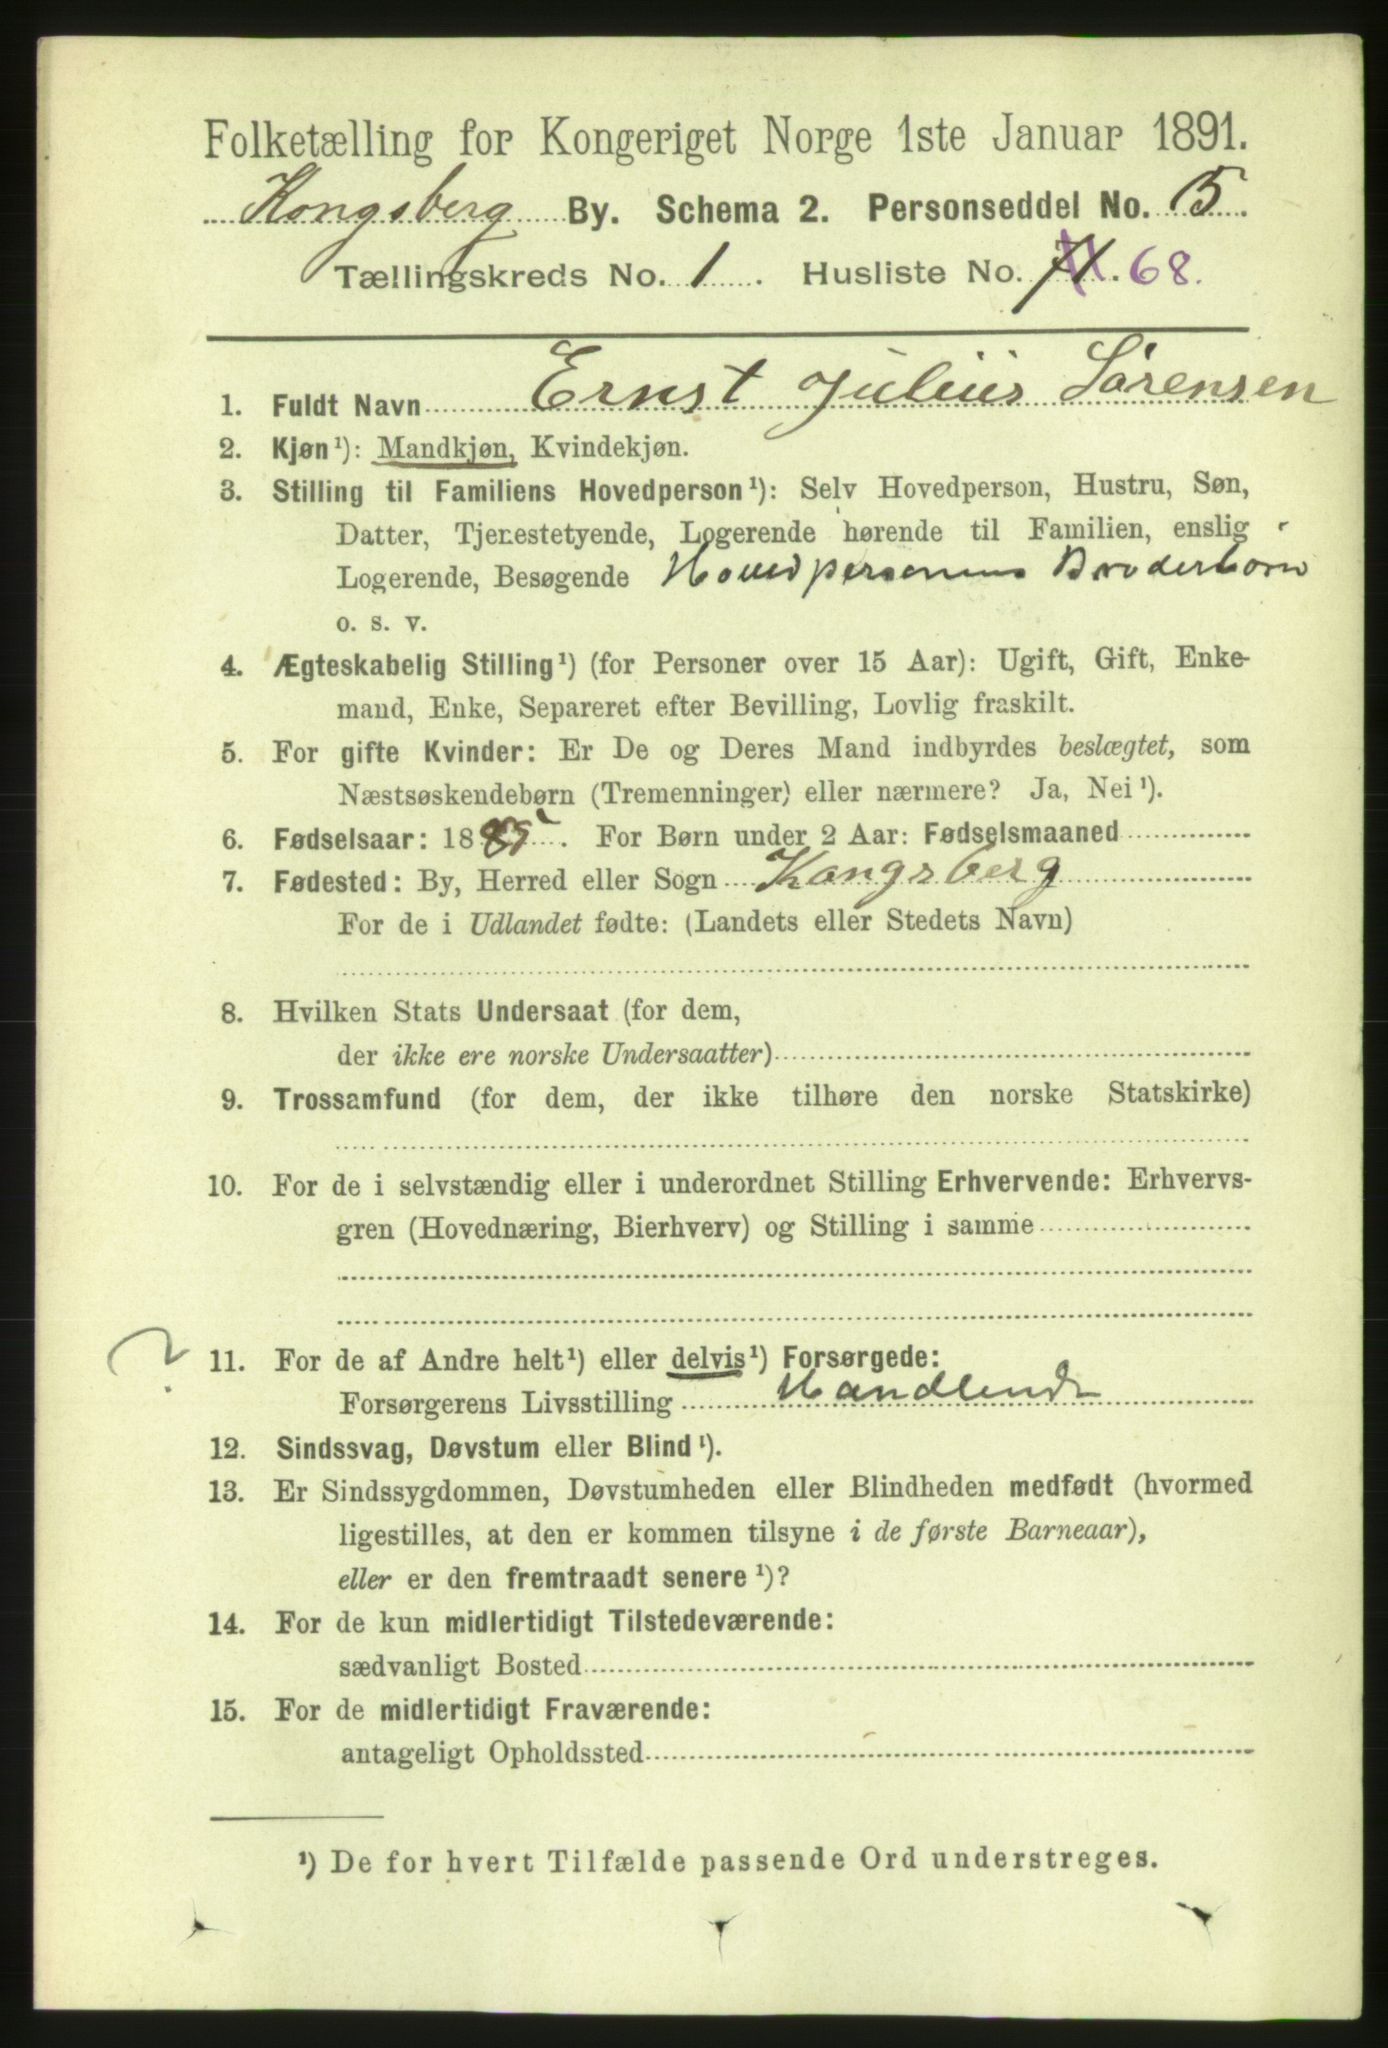 Folketælling for Kongeriget Norge 1ste Januar 1891.
Kongsberg By. Schema 2. Personseddel No. 5.
Tællingskreds No. 1. Husliste No. 71. 68.
1. Fuldt Navn Ernst Julius Sørensen
2. Kjøn¹): Mandkjøn, Kvindekjøn.
3. Stilling til Familiens Hovedperson¹): Selv Hovedperson, Hustru, Søn,
Datter, Tjenestetyende, Logerende hørende til Familien, enslig
Logerende, Besøgende Hovedpersonens Broderbörn
o. s. v.
4. Ægteskabelig Stilling¹) (for Personer over 15 Aar): Ugift, Gift, Enke-
mand, Enke, Separeret efter Bevilling, Lovlig fraskilt.
5. For gifte Kvinder: Er De og Deres Mand indbyrdes beslægtet, som
Næstsøskendebørn (Tremenninger) eller nærmere? Ja, Nei¹).
6. Fødselsaar: 1885. For Børn under 2 Aar: Fødselsmaaned
7. Fødested: By, Herred eller Sogn Kongsberg
For de i Udlandet fødte: (Landets eller Stedets Navn)
8. Hvilken Stats Undersaat (for dem,
der ikke ere norske Undersaatter)
9. Trossamfund (for dem, der ikke tilhøre den norske Statskirke)
10. For de i selvstændig eller i underordnet Stilling Erhvervende: Erhvervs-
gren (Hovednæring, Bierhverv) og Stilling i samme
? 11. For de af Andre helt¹) eller delvis¹) Forsørgede:
Forsørgerens Livsstilling Handlende
12. Sindssvag, Døvstum eller Blind¹).
13. Er Sindssygdommen, Døvstumheden eller Blindheden medfødt (hvormed
ligestilles, at den er kommen tilsyne i de første Barneaar),
eller er den fremtraadt senere¹)?
14. For de kun midlertidigt Tilstedeværende:
sædvanligt Bosted
15. For de midlertidigt Fraværende:
antageligt Opholdssted
¹) De for hvert Tilfælde passende Ord understreges.